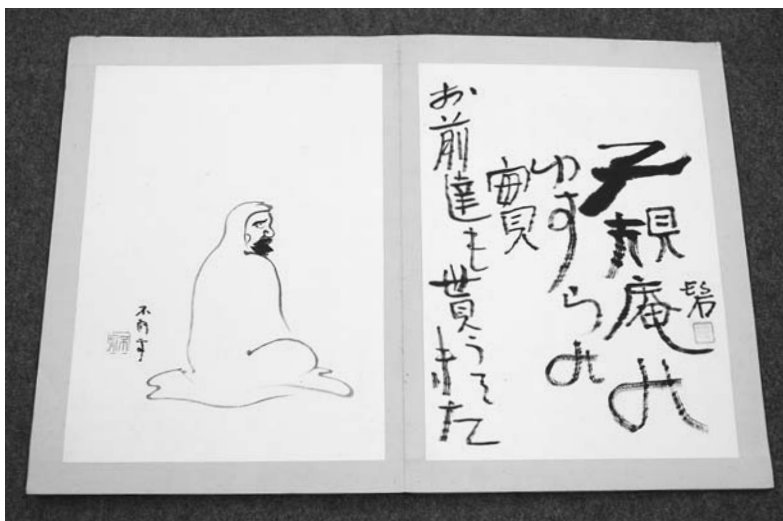 碧
子規庵の
ゆすらの
實
お前達も貰うて来た
不折